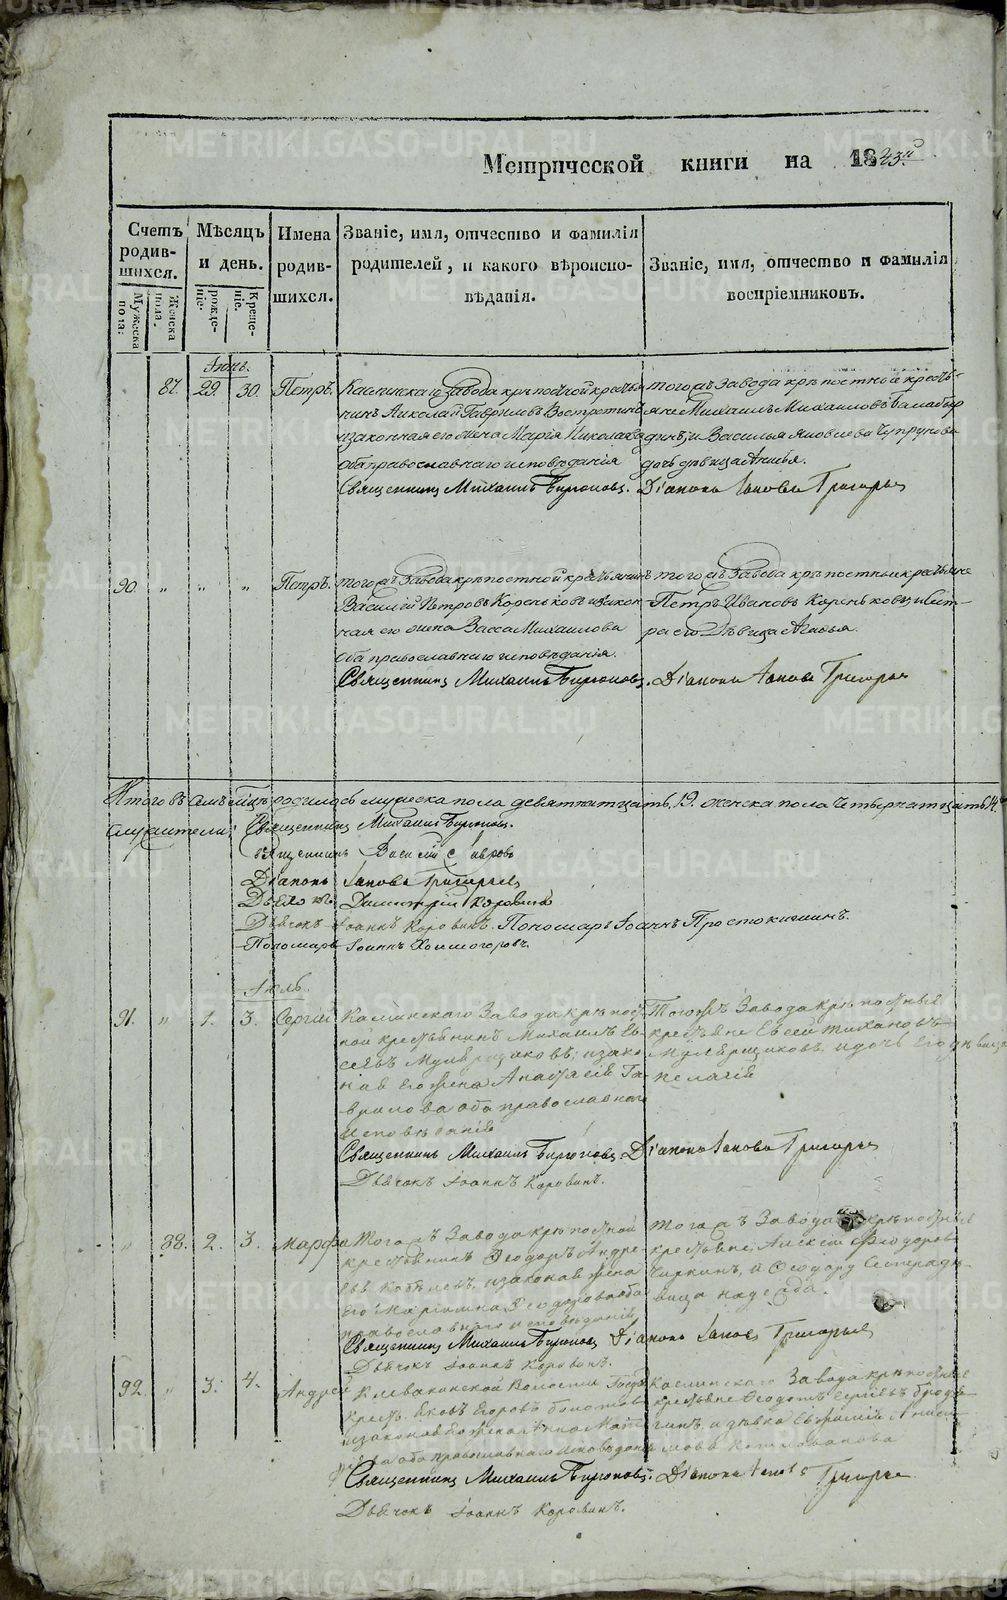 METRIKI.GASO-URAL.RU
Метрической книги на 1843й
Счетъ родив-шихся.
Мужеска пола.
Женска пола.
Мѣсяцъ и день.
рожде-ніе.
Креще-ніе.
Имена родив-шихся.
Званіе, имя, отчество и фамилія
родителей, и какого вѣроиспо-
вѣданія.
Званіе, имя, отчество и фамилія
воспріемниковъ.
Іюнь.
87. 29. 30. Петръ.
Каслинскаго завода крѣпостной крестья
нинъ Николай Гавриловъ Востротинъ
и законная его жена Марія Николаева
оба православнаго исповѣданія
Священникъ Михаилъ Бирюковъ.
того жъ Завода крѣпостной кресть-
янинъ Михаилъ Михаиловъ
и Василья Яковлева Чупрунова
дочь дѣвица
Діаконъ Іаковъ Григорьевъ
90. „ „ „ Петръ.
того жъ Завода крѣпостной крестьянинъ
Василій Петровъ Кореньковъ и закон
ная его жена Васса Михаилова
оба православнаго исповѣданія.
Священникъ Михаилъ Бирюковъ.
того жъ Завода крѣпостные крестьяне
Петръ Ивановъ Кореньковъ и сест-
ра его дѣвица Агафья.
Діаконъ Іаковъ Григорьевъ
Итого въ семъ мѣсяцѣ родилось мужеска пола девятнатцать, 19. женска пола четырнатцать 14
служители:
Священникъ Михаилъ Бирюковъ.
Священникъ Василій
Діаконъ Іаковъ Григорьевъ
Дьячокъ Димитрій Коровинъ
Дьячокъ Іоаннъ Коровинъ. Пономарь Іоаннъ Простокишинъ.
Пономарь Іоаннъ Холмогоровъ.
Іюль.
91. „ 1. 3. Сергій
Каслинскаго Завода крѣпост
ной крестьянинъ Михаилъ Ев
сеевъ Мулярщиковъ; и закон
ная его жена Анастасія Га-
врилова оба православнаго
исповѣданія
Священникъ Михаилъ Бирюковъ.
Дьячокъ Іоаннъ Коровинъ.
Тогожъ Завода крѣпостные
крестьяне Евсей Тихановъ
Мулярщиковъ. и дочь его дѣвица
Пелагія
Діаконъ Іаковъ Григорьевъ
„ 88. 2. 3. Марфа
Тогожъ Завода крѣпостной
крестьянинъ Ѳеодоръ Андре
евъ и законная жена
его Маріамна Ѳеодорова оба
православнаго исповѣданія
Священникъ Михаилъ Бирюковъ
Дьячокъ Іоаннъ Коровинъ.
Тогожъ Завода крѣпостные
крестьяне; Алексѣй Ѳеодоровъ
Чиркинъ, и
вица Надежда.
Діаконъ Іаковъ Григорьевъ
92. „ 3. 4. Андрей
Клевакинской Волости
крест. Яковъ Егоровъ
и законная его жена Анна
оба православнаго исповѣданія
Священникъ Михаилъ Бирюковъ.
Дьячокъ Іоаннъ Коровинъ.
Каслинскаго Завода крѣпостные
крестьяне Ѳеодотъ Сергѣевъ
и дѣвка Евгенія
Діаконъ Іаковъ Григорьевъ